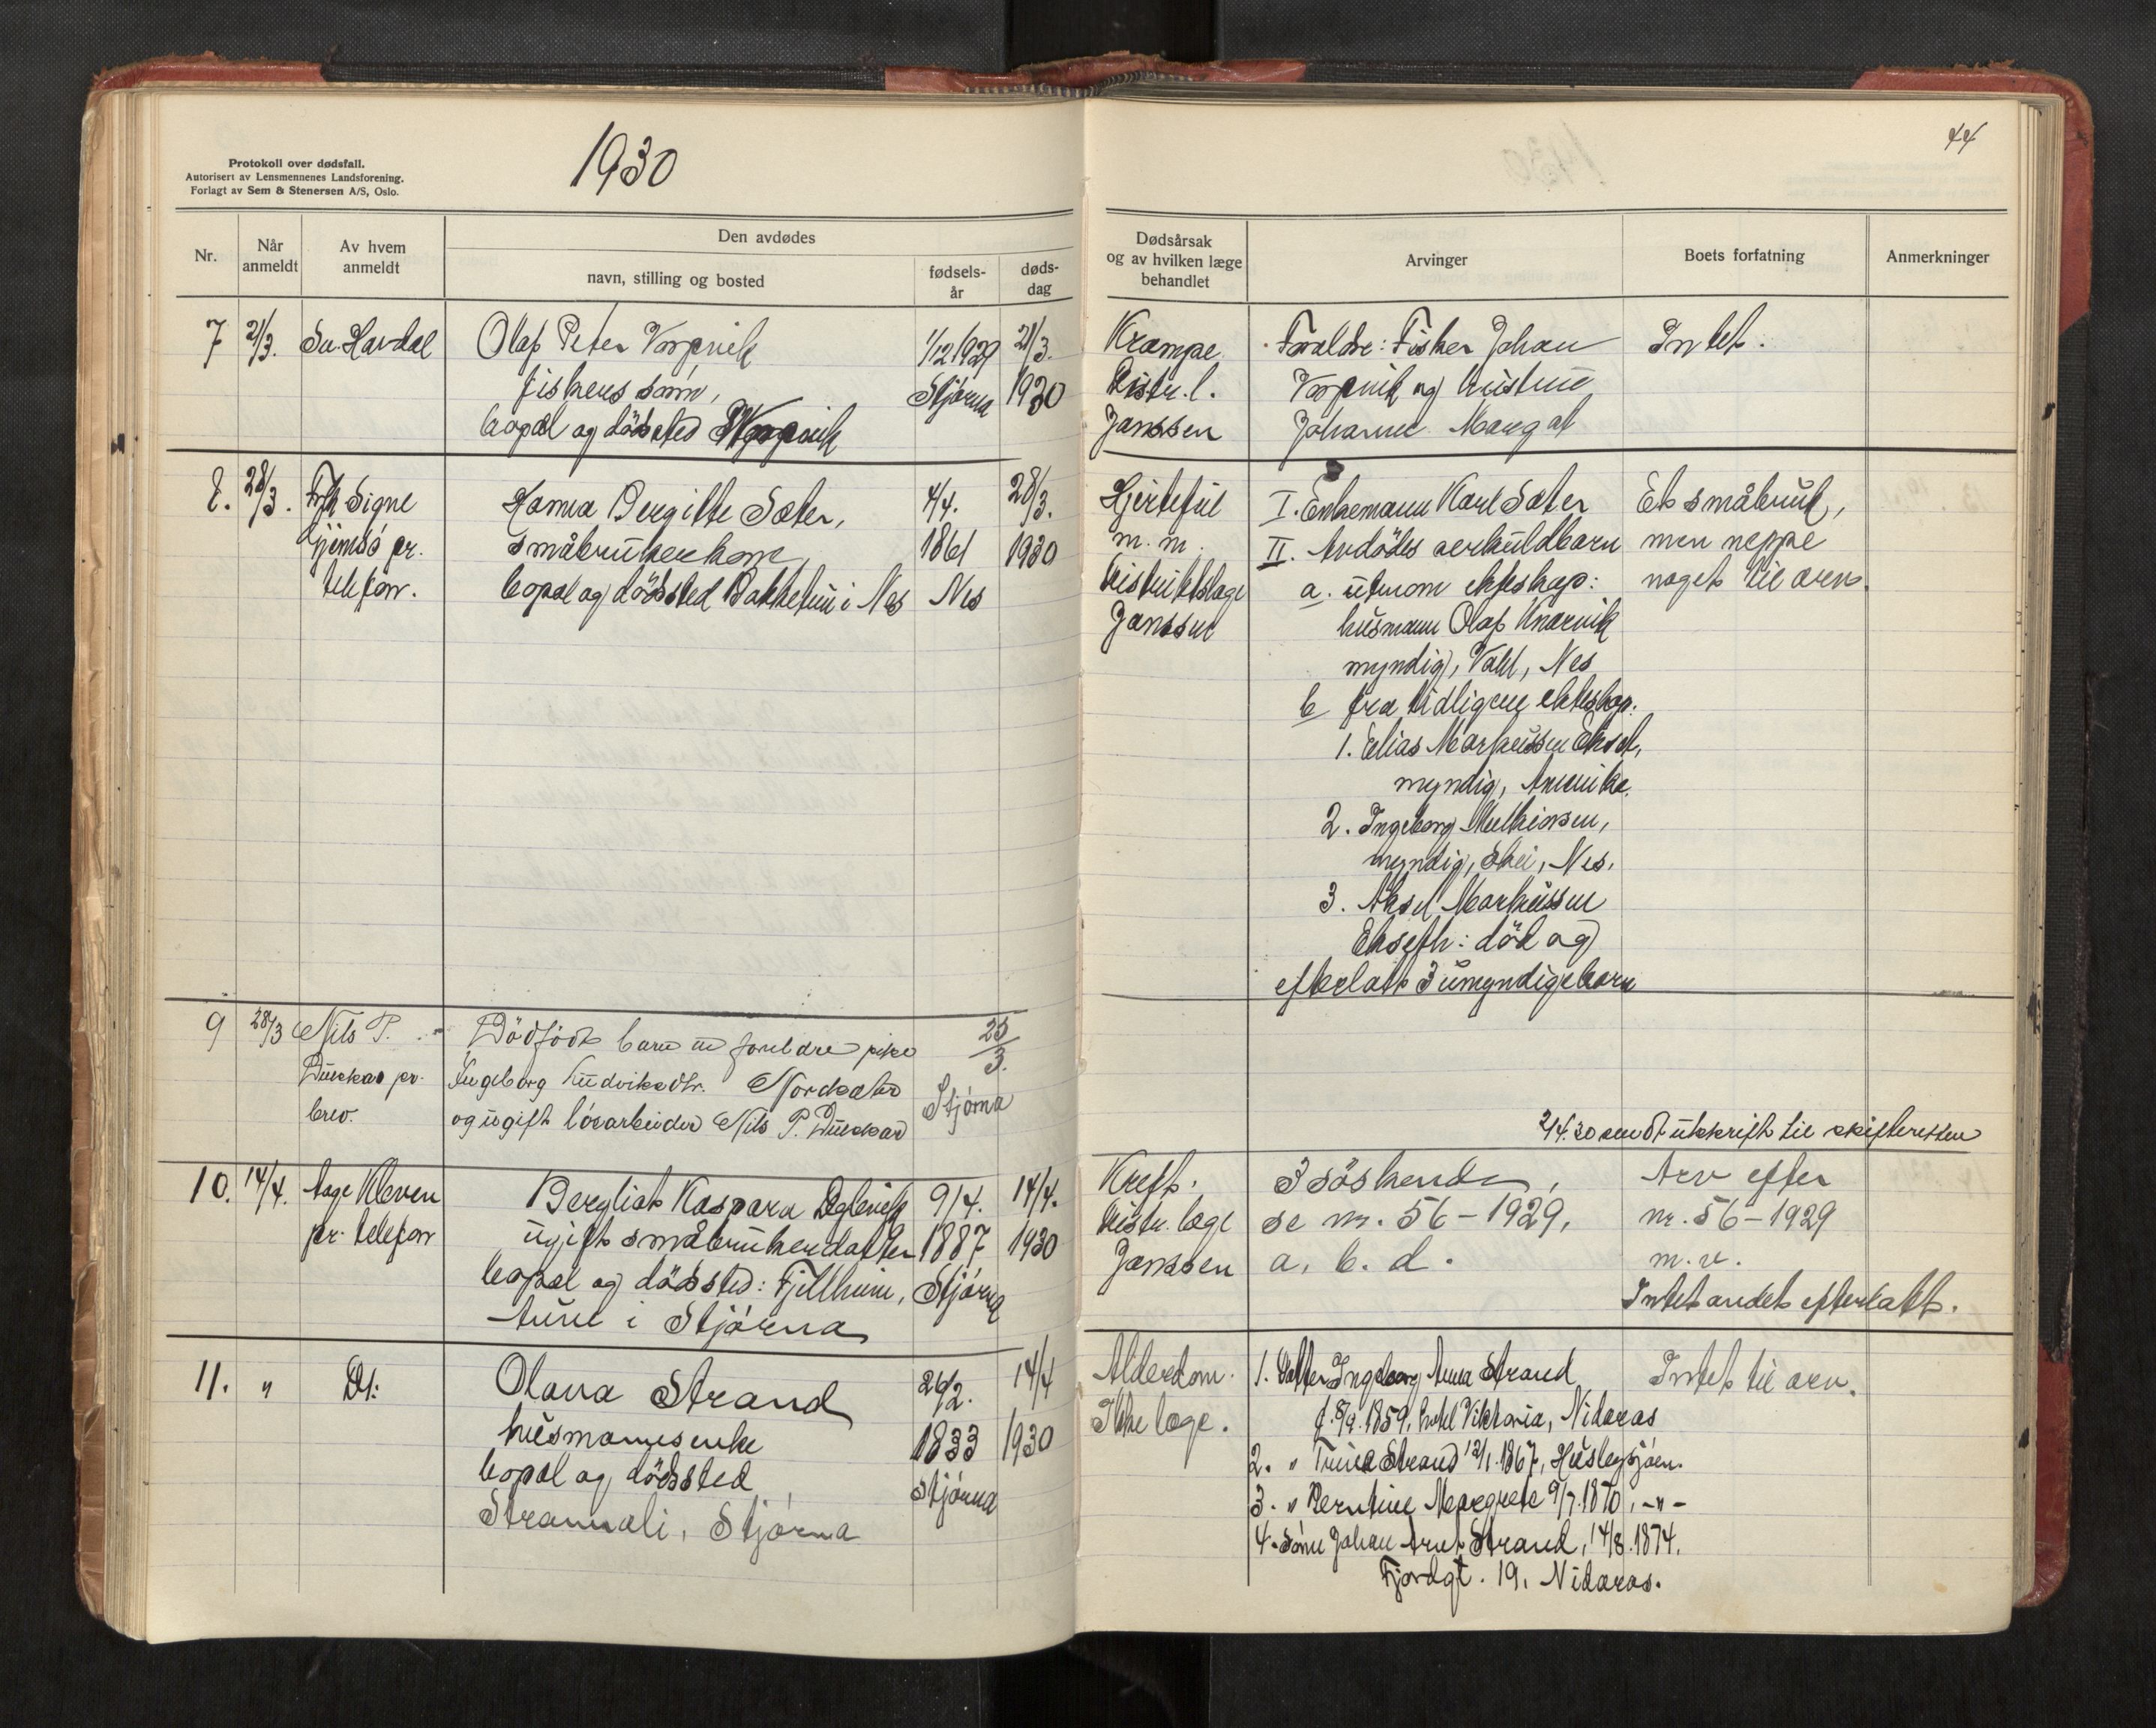 1930
44
Protokoll over dødsfall.
Autorisert av Lensmennenes Landsforening.
Forlagt av Sem & Stenersen A/S, Oslo.
Nr.
Når anmeldt
Av hvem anmeldt
Den avdødes
navn, stilling og bosted
fødselsår
dødsdag
Dødsårsak og av hvilken læge behandlet
Arvinger
Boets forfatning
Anmerkninger
7 21/3. Olaf Peter Vorpvik 1/12 1929 21/3.
fiskers sönn, Stjørna 1930
bopæl og dödsted Vorpvik
Krampe.
Distr. l.
Janssen
Foraldre: Fisker Johan
Vorpvik og hustru
Johanne Margat
Intet.
8. 28/3. Frk Signe Bergitte Sæter, 4/4. 28/3.
pr. småbrukerkone, 1861 1930
telefon. bopæl og dödssted i Nes Nes
m. m.
Distriktslæge
Janssen
I. Enkemann Karl Sæter
II. Avdödes
a. utenom ekteskap:
husmann Olaf
myndig, Nes
b fra tidligere ekteskap:
1. Elias
myndig, Amerika.
2. Ingeborg
myndig, Nes.
3. Aksel Markussen
Ekseth: död og
efterlatt 3 umyndige barn
Et småbruk,
men neppe
noget til arv.
9 28/3 Nils P. Dödfödt barn foreldre pike 25/3.
pr. Ingeborg Ludviksdtr.
brev. og ugift lösarbeider Nils P. Stjørna
2/4.30 sendt utskrift til skifteretten
10. 14/4. Aage Kleven Bergliot Kaspara 9/4. 14/4.
pr. telefon ugift småbrukerdatter 1887 1930
bopæl og dödssted: Fjellheim, Stjørna
Aune i Stjørna
Kreft.
Distr. læge
Janssen
3 söskende,
se nr. 56 - 1929,
a, b. d.
Arv efter
nr. 56 - 1929
m. v.
Intet andet efterlatt.
11. " Do: Olava Strand 26/2. 14/4
husmannsenke 1833 1930
bopæl og dödssted Stjørna
Strandli, Stjørna
Alderdom.
Ikke læge.
1. Datter Ingeborg Anna Strand
f. 8/9. 1859, hotel Viktoria, Nidaros
2. " Strand 12/1. 1867,
3. " Berntine Margrete 9/7. 1870, - " -
4. Sönn Johan Arnt Strand, 14/8. 1874.
Fjordgt. 19, Nidaros.
Intet til arv.